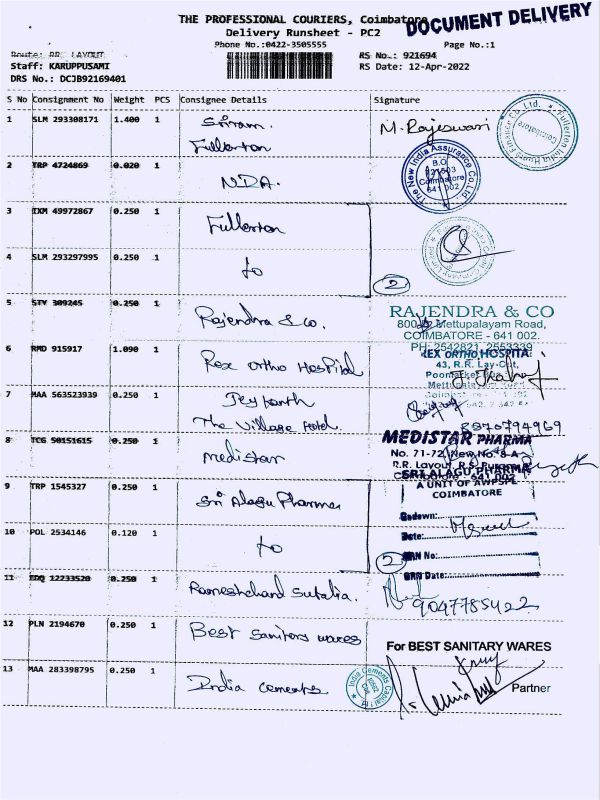 THE PROFESSIONAL COURIERS, Coimbatore
DOCUMENT DELIVERY
Delivery Runsheet - PC2
Phone No.:0422-3505555
Page No.:1
Route: RRS LAYOUT
RS No.: 921694
Staff: KARUPPUSAMI
RS Date: 12-Apr-2022
DRS No.: DCJB92169401
S No Consignment No Weight PCS Consignee Details Signature
1 SLM 293308171 1.400 1 Sriram. M. Rajeswari
Fullerton
2 TRP 4724869 0.020 1
NDA.
The New India Assurance Co. Ltd.
B.O
Coimbatore
641 002
3 IXM 49972867 0.250 1 Fullerton
4 SLM 293297995 0.250 1 to 2
5 STY 309245 0.250 1 Rajendra & co.
RAJENDRA & CO
Mettupalayam Road,
COIMBATORE - 641 002.
PH: 2542821, 2553339
6 RMD 915917 1.090 1 Rex Ortho Hospital
REX ORTHO HOSPITAL
43, R.R. Lay-Out,
7 MAA 563523939 0.250 1 Jeykanth
The Village Hotel.
8870794969
8 TCG 50151615 0.250 1 medistar
MEDISTAR PHARMA
No. 71-72, New No. 8-A
R.R. Layout, R.S. Puram
Coimbatore - 641 002
SRI ALAGU PHARMA
A UNIT OF AWPSPL
COIMBATORE
9 TRP 1545327 0.250 1 Sri Alagu Pharma
Godown:
10 POL 2534146 0.120 1 to 2
Date:
GRN No:
GRN Date:
11 EDQ 12233520 0.250 1 Rameshchand Sutalia.
9047785422
12 PLN 2194670 0.250 1 Best Sanitory wares
For BEST SANITARY WARES
13 MAA 283398795 0.250 1 India cements
Partner